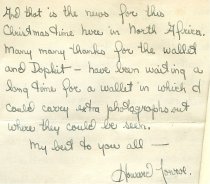 And that is the news for this
Christmas time here in North Africa.
Many many thanks for the wallet
and Dopkit - have been waiting a
long time for a wallet in which I
could carry extra photographs out
where they could be seen.
My best to you all —
Howard Monroe.